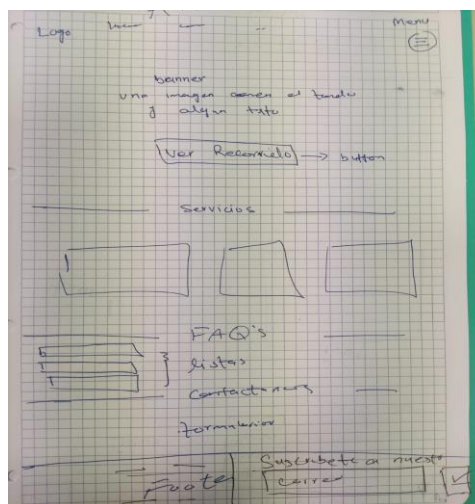 Logo
Menu
banner
una imagen en el fondo
y algun texto
Ver Recorrido → button
Servicios
FAQ's
listas
Contactanos
formulario
Suscribete a nuestro
Footer
correo